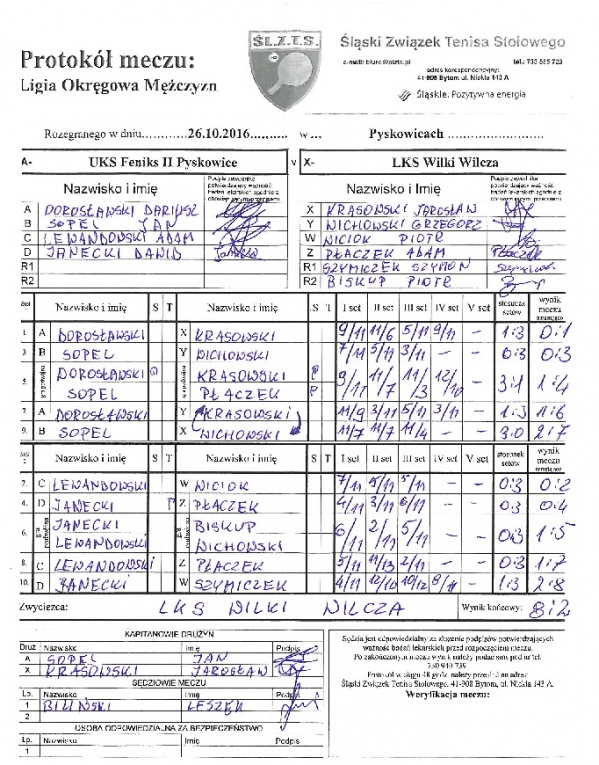 Protokół meczu:
Ligia Okręgowa Mężczyzn
ŚL.Z.T.S.
Śląski Związek Tenisa Stołowego
adres korespondencyjny:
41-908 Bytom, ul. Nickla 143 A
Śląskie. Pozytywna energia
Rozegranego w dniu............26.10.2016.......... w ... Pyskowicach ......................
A- UKS Feniks II Pyskowice v X- LKS Wilki Wilcza
Nazwisko i Imię Nazwisko i Imię
A DOROSŁAWSKI DARIUSZ X KRASOWSKI JAROSŁAW
B SOPEL JAN Y WICHOWSKI GRZEGORZ
C LEWANDOWSKI ADAM W NICIOK PIOTR
D JANECKI DAWID Z PŁACZEK ADAM Płaczek
R1 R1 SZYMICZEK SZYMON
R2 R2 BISKUP PIOTR
Nazwisko i imię S T Nazwisko i imię S T I set II set III set IV set V set stosunek setów wynik meczu
1. A DOROSŁAWSKI X KRASOWSKI 9/11 11/6 5/11 9/11 - 1:3 0:1
3. B SOPEL Y WICHOWSKI 7/11 5/11 3/11 - - 0:3 0:3
5. DOROSŁAWSKI KRASOWSKI
SOPEL PŁACZEK 9/11 11/7 11/3 12/10 - 3:1 1:4
7. A DOROSŁAWSKI Y KRASOWSKI 11/9 3/11 5/11 3/11 - 1:3 1:6
9. B SOPEL X WICHOWSKI 11/7 11/7 11/4 - - 3:0 2:7
Nazwisko i imię S T Nazwisko i imię S T I set II set III set IV set V set stosunek setów wynik meczu
2. C LEWANDOWSKI W NICIOK 7/11 5/11 5/11 - - 0:3 0:2
4. D JANECKI Z PŁACZEK 4/11 3/11 6/11 - - 0:3 0:4
6. JANECKI BISKUP
LEWANDOWSKI WICHOWSKI 6/11 2/11 5/11 - - 0:3 1:5
8. C LEWANDOWSKI Z PŁACZEK 5/11 11/13 2/11 - - 0:3 1:7
10. D JANECKI W SZYMICZEK 4/11 12/10 10/12 8/11 - 1:3 2:8
Zwycięzca: LKS WILKI WILCZA Wynik końcowy: 8:2
KAPITANOWIE DRUŻYN
Druż Nazwisko Imię Podpis
A SOPEL JAN
X KRASOWSKI JAROSŁAW
SĘDZIOWIE MECZU
Lp. Nazwisko Imię Podpis
1 BILIŃSKI LESZEK
2
OSOBA ODPOWIEDZIALNA ZA BEZPIECZEŃSTWO
Lp. Nazwisko Imię Podpis
1
Sędzia jest odpowiedzialny za złożenie podpisów potwierdzających
ważność badań lekarskich przed rozpoczęciem meczu.
Po zakończonym meczu wynik należy podać sms pod nr tel.
Śląski Związek Tenisa Stołowego, 41-908 Bytom, ul. Nickla 143 A.
Weryfikacja meczu: